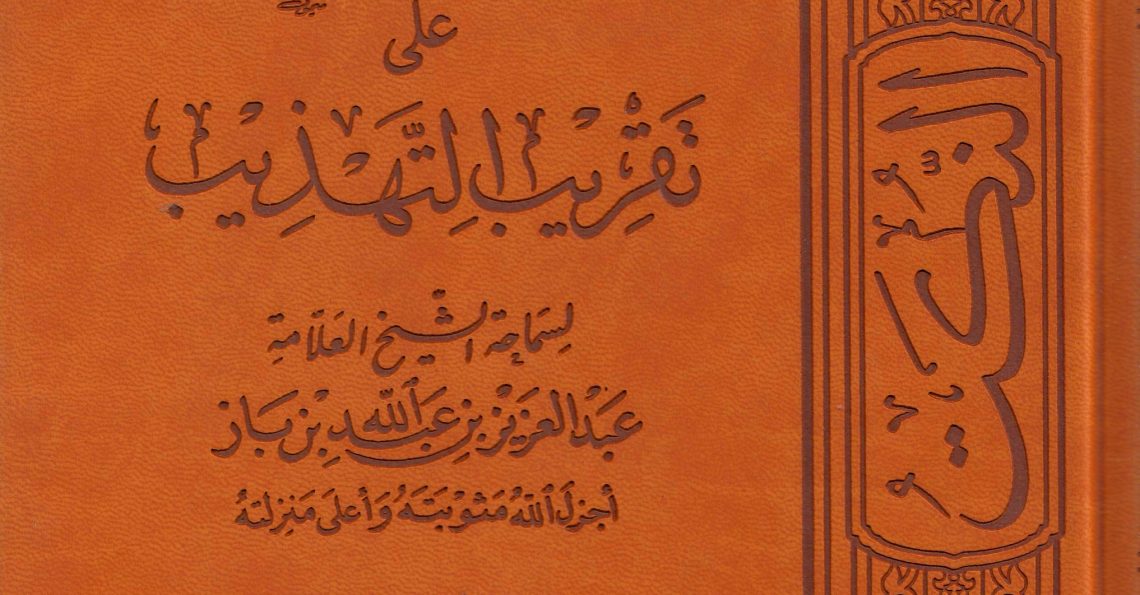 على
تقريب التهذيب
لسماحة الشيخ العلّامة
عبد العزيز بن عبد الله بن باز
أجزل الله مثوبته وأعلى منزلته
النكت